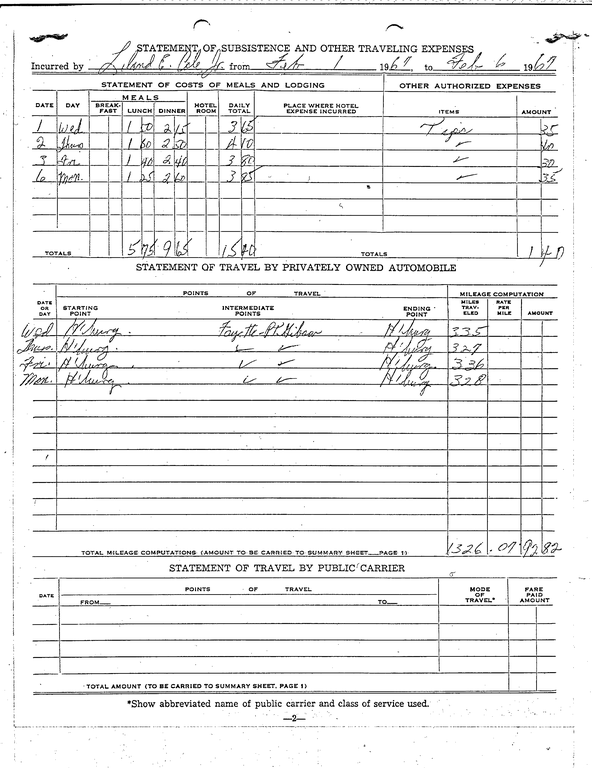 STATEMENT OF SUBSISTENCE AND OTHER TRAVELING EXPENSES
Incurred by Leland E. Cole Jr. from Feb 1 1967 to Feb 6 1967
STATEMENT OF COSTS OF MEALS AND LODGING OTHER AUTHORIZED EXPENSES
DATE DAY MEALS BREAK-FAST LUNCH DINNER HOTEL ROOM DAILY TOTAL PLACE WHERE HOTEL EXPENSE INCURRED ITEMS AMOUNT
1 Wed 1 50 2 15 3 65 Tips 35
2 Thurs 1 60 2 50 4 10 ✓ 40
3 Fri 1 40 2 40 3 80 ✓ 30
6 Mon. 1 25 2 60 3 85 ✓ 35
TOTALS 5 75 9 65 15 40 TOTALS 1 40
STATEMENT OF TRAVEL BY PRIVATELY OWNED AUTOMOBILE
DATE OR DAY POINTS OF TRAVEL MILEAGE COMPUTATION
STARTING POINT INTERMEDIATE POINTS ENDING POINT MILES TRAV-ELED RATE PER MILE AMOUNT
Wed H'burg Fayette-Pt. Gibson H'burg 335
Thurs. H'burg. ✓ ✓ H'burg. 327
Fri. H'burg. ✓ ✓ H'burg. 336
Mon. H'burg ✓ ✓ H'burg. 328
TOTAL MILEAGE COMPUTATIONS (AMOUNT TO BE CARRIED TO SUMMARY SHEET, PAGE 1) 1326 .07 92 82
STATEMENT OF TRAVEL BY PUBLIC CARRIER
DATE POINTS OF TRAVEL MODE OF TRAVEL* FARE PAID AMOUNT
FROM— TO—
TOTAL AMOUNT (TO BE CARRIED TO SUMMARY SHEET, PAGE 1)
*Show abbreviated name of public carrier and class of service used.
—2—